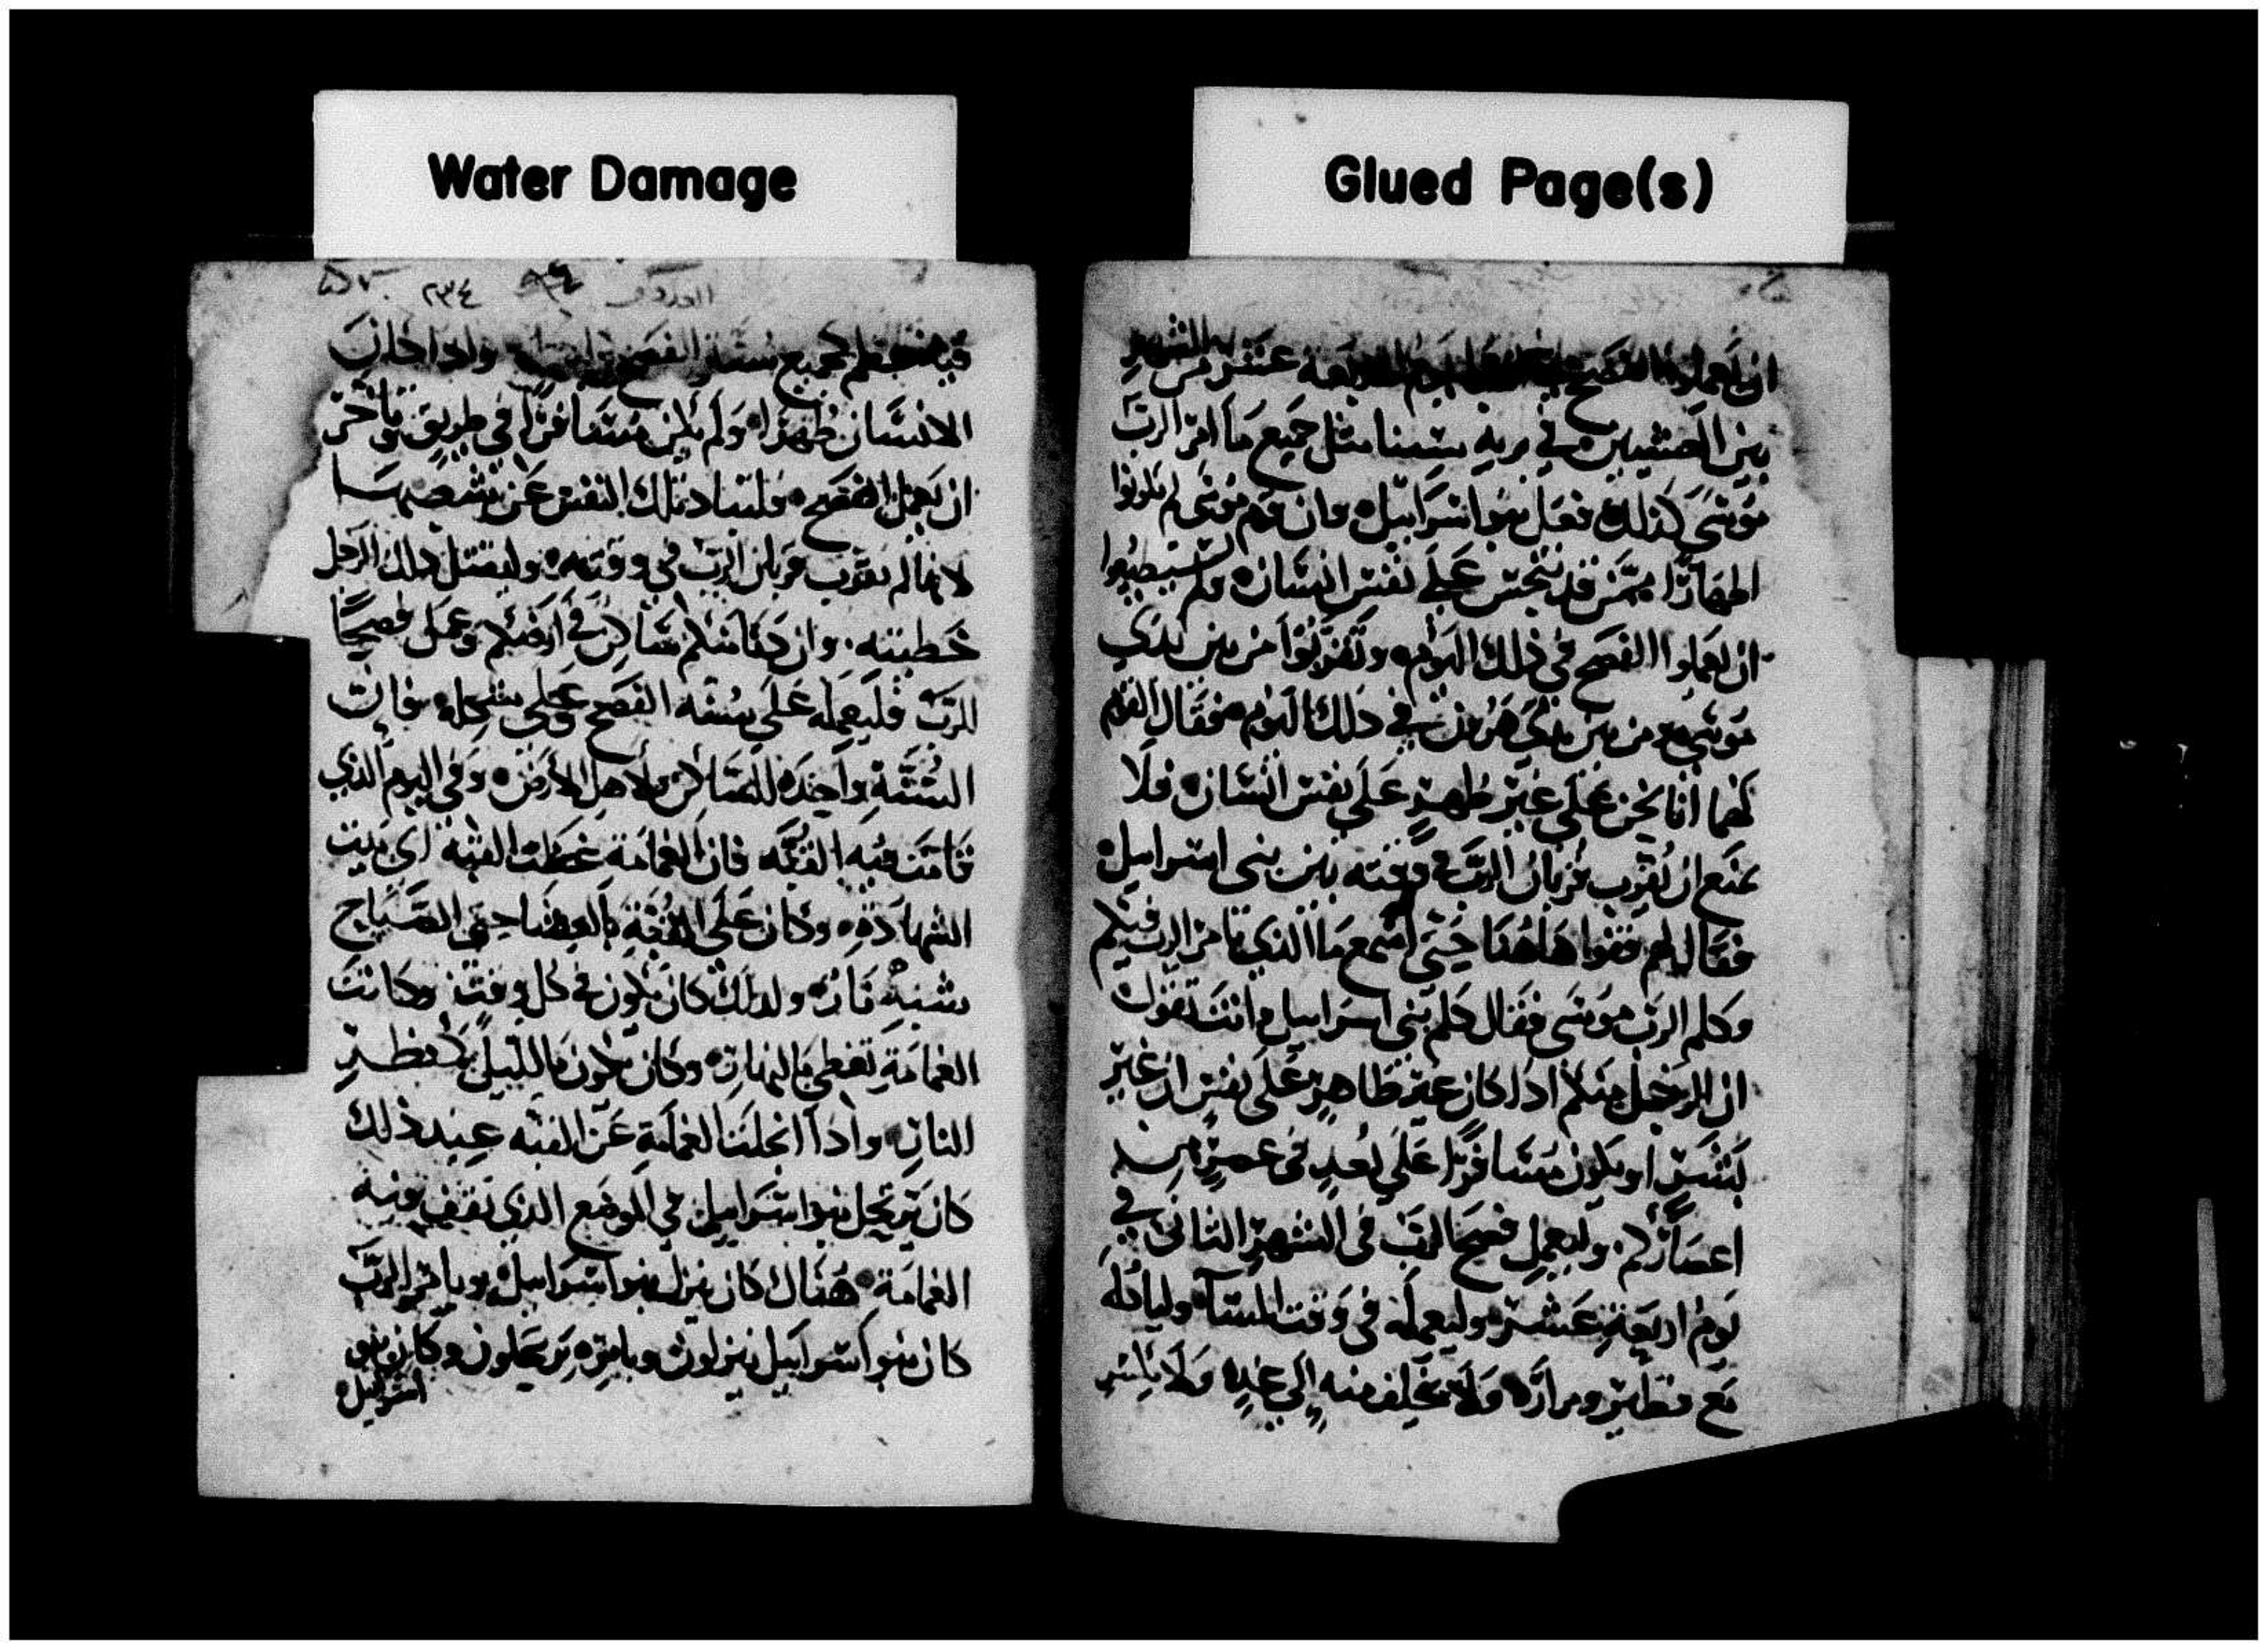 Water Damage
Glued Page(s)
ان يعملوا الفصح عشر من الشهر
بين العشيين في برية سينا مثل جميع ما امر الرب
موسى كذلك فعل بنوا اسرائيل وان قوم موسى لم يكونوا
اطهارًا ممن قد تنجس على نفس انسان ولم يستطيعوا
ان يعملوا الفصح في ذلك اليوم وتقربوا من بين يدي
موسى ومن بين يدي هرون في ذلك اليوم فقال القوم
لهما انا نحن على غير طهرٍ على نفس انسان فلا
نمنع ان نقرب قربان الرب في وقته بين بني اسرائيل
فقال لهم قفوا هاهنا حتى اسمع ما الذي يامر الرب فيكم
وكلم الرب موسى فقال كلم بني اسرائيل وانت تقول
ان الرجل منكم اذا كان غير طاهرٍ على نفس ان غير
بشرٍ او يكون مسافرًا على بُعدٍ في عصرٍ من
اعصاركم وليعمل فصحا للرب في الشهر الثاني في
يوم اربعة عشر وليعمله في وقت المساء ولياكله
مع فطير ومراره ولا يخلف منه الى غدٍ ولا يكسر
٢٣٤
جميع سنة الفصح واذا كان
الانسان طهرًا ولم يكن مسافرًا في طريق وتاخر
ان يعمل الفصح فلتباد تلك النفس عن شعبها
لانها لم تقرب قربان الرب في وقته وليقتبل ذلك الرجل
خطيته وان دنا منكم ساكن في ارضكم وعمل فصحًا
للرب فليعمله على سنة الفصح وعلى شكله فان
السُنَّة واحدة للساكن ولاهل الارض وفي اليوم الذي
قامت فيه القبَّه فان الغمامة غطت القبه اي بيت
الشهادة وكان على القبة بالعشا حتى الصباح
شبه نار ولذلك كان يكون في كل وقت وكانت
الغمامة تغطي بالنهار وكان يكون بالليل كمنظر
النار واذا انجلت الغمامة عن القبه عند ذلك
كان يرتحل بنوا اسرائيل في الموضع الذي تقف فيه
الغمامة هناك كان ينزل بنوا اسرائيل وبامر الرب
كان بنوا اسرائيل ينزلون وبامره يرتحلون وكان بنو
اسرائيل